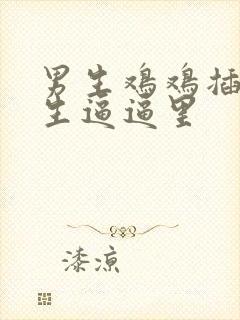 男生鸡鸡插
生逼逼里
漆凉